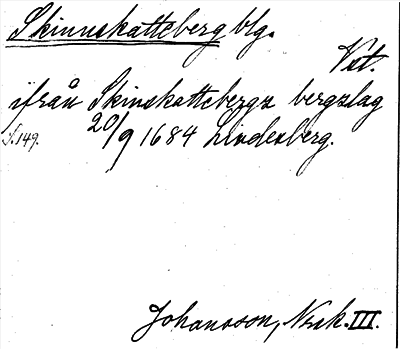 Skinnskatteberg blg.
Vst.
ifrån Skinskattebergz bergzlag
S. 149. 20/9 1684 Lindesberg.
Johansson, Nssk. III.